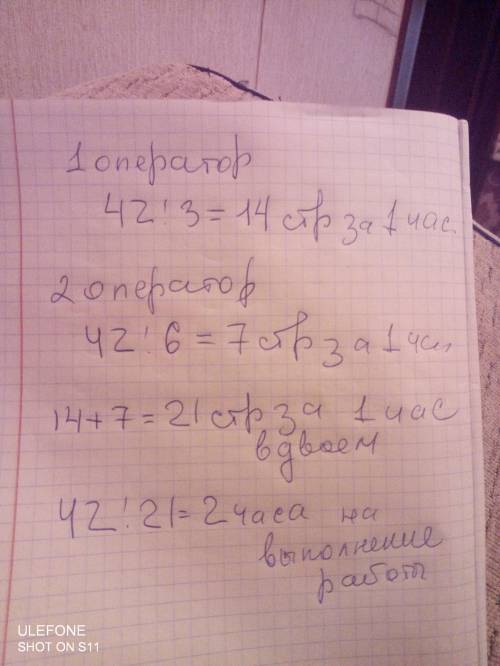 1 оператор
42 : 3 = 14 стр за 1 час
2 оператор
42 : 6 = 7 стр за 1 час
14 + 7 = 21 стр за 1 час
вдвоем
42 : 21 = 2 часа на
выполнение
работы
ULEFONE
SHOT ON S11